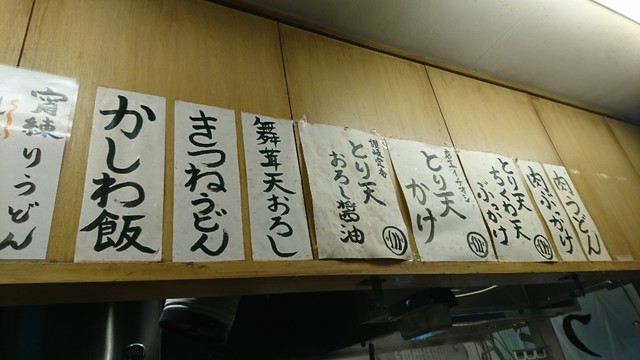 肉うどん
肉ぶっかけ
とり天
ちくわ天
ぶっかけ
とり天
かけ
とり天
おろし醤油
舞茸天おろし
きつねうどん
かしわ飯
宵練りうどん